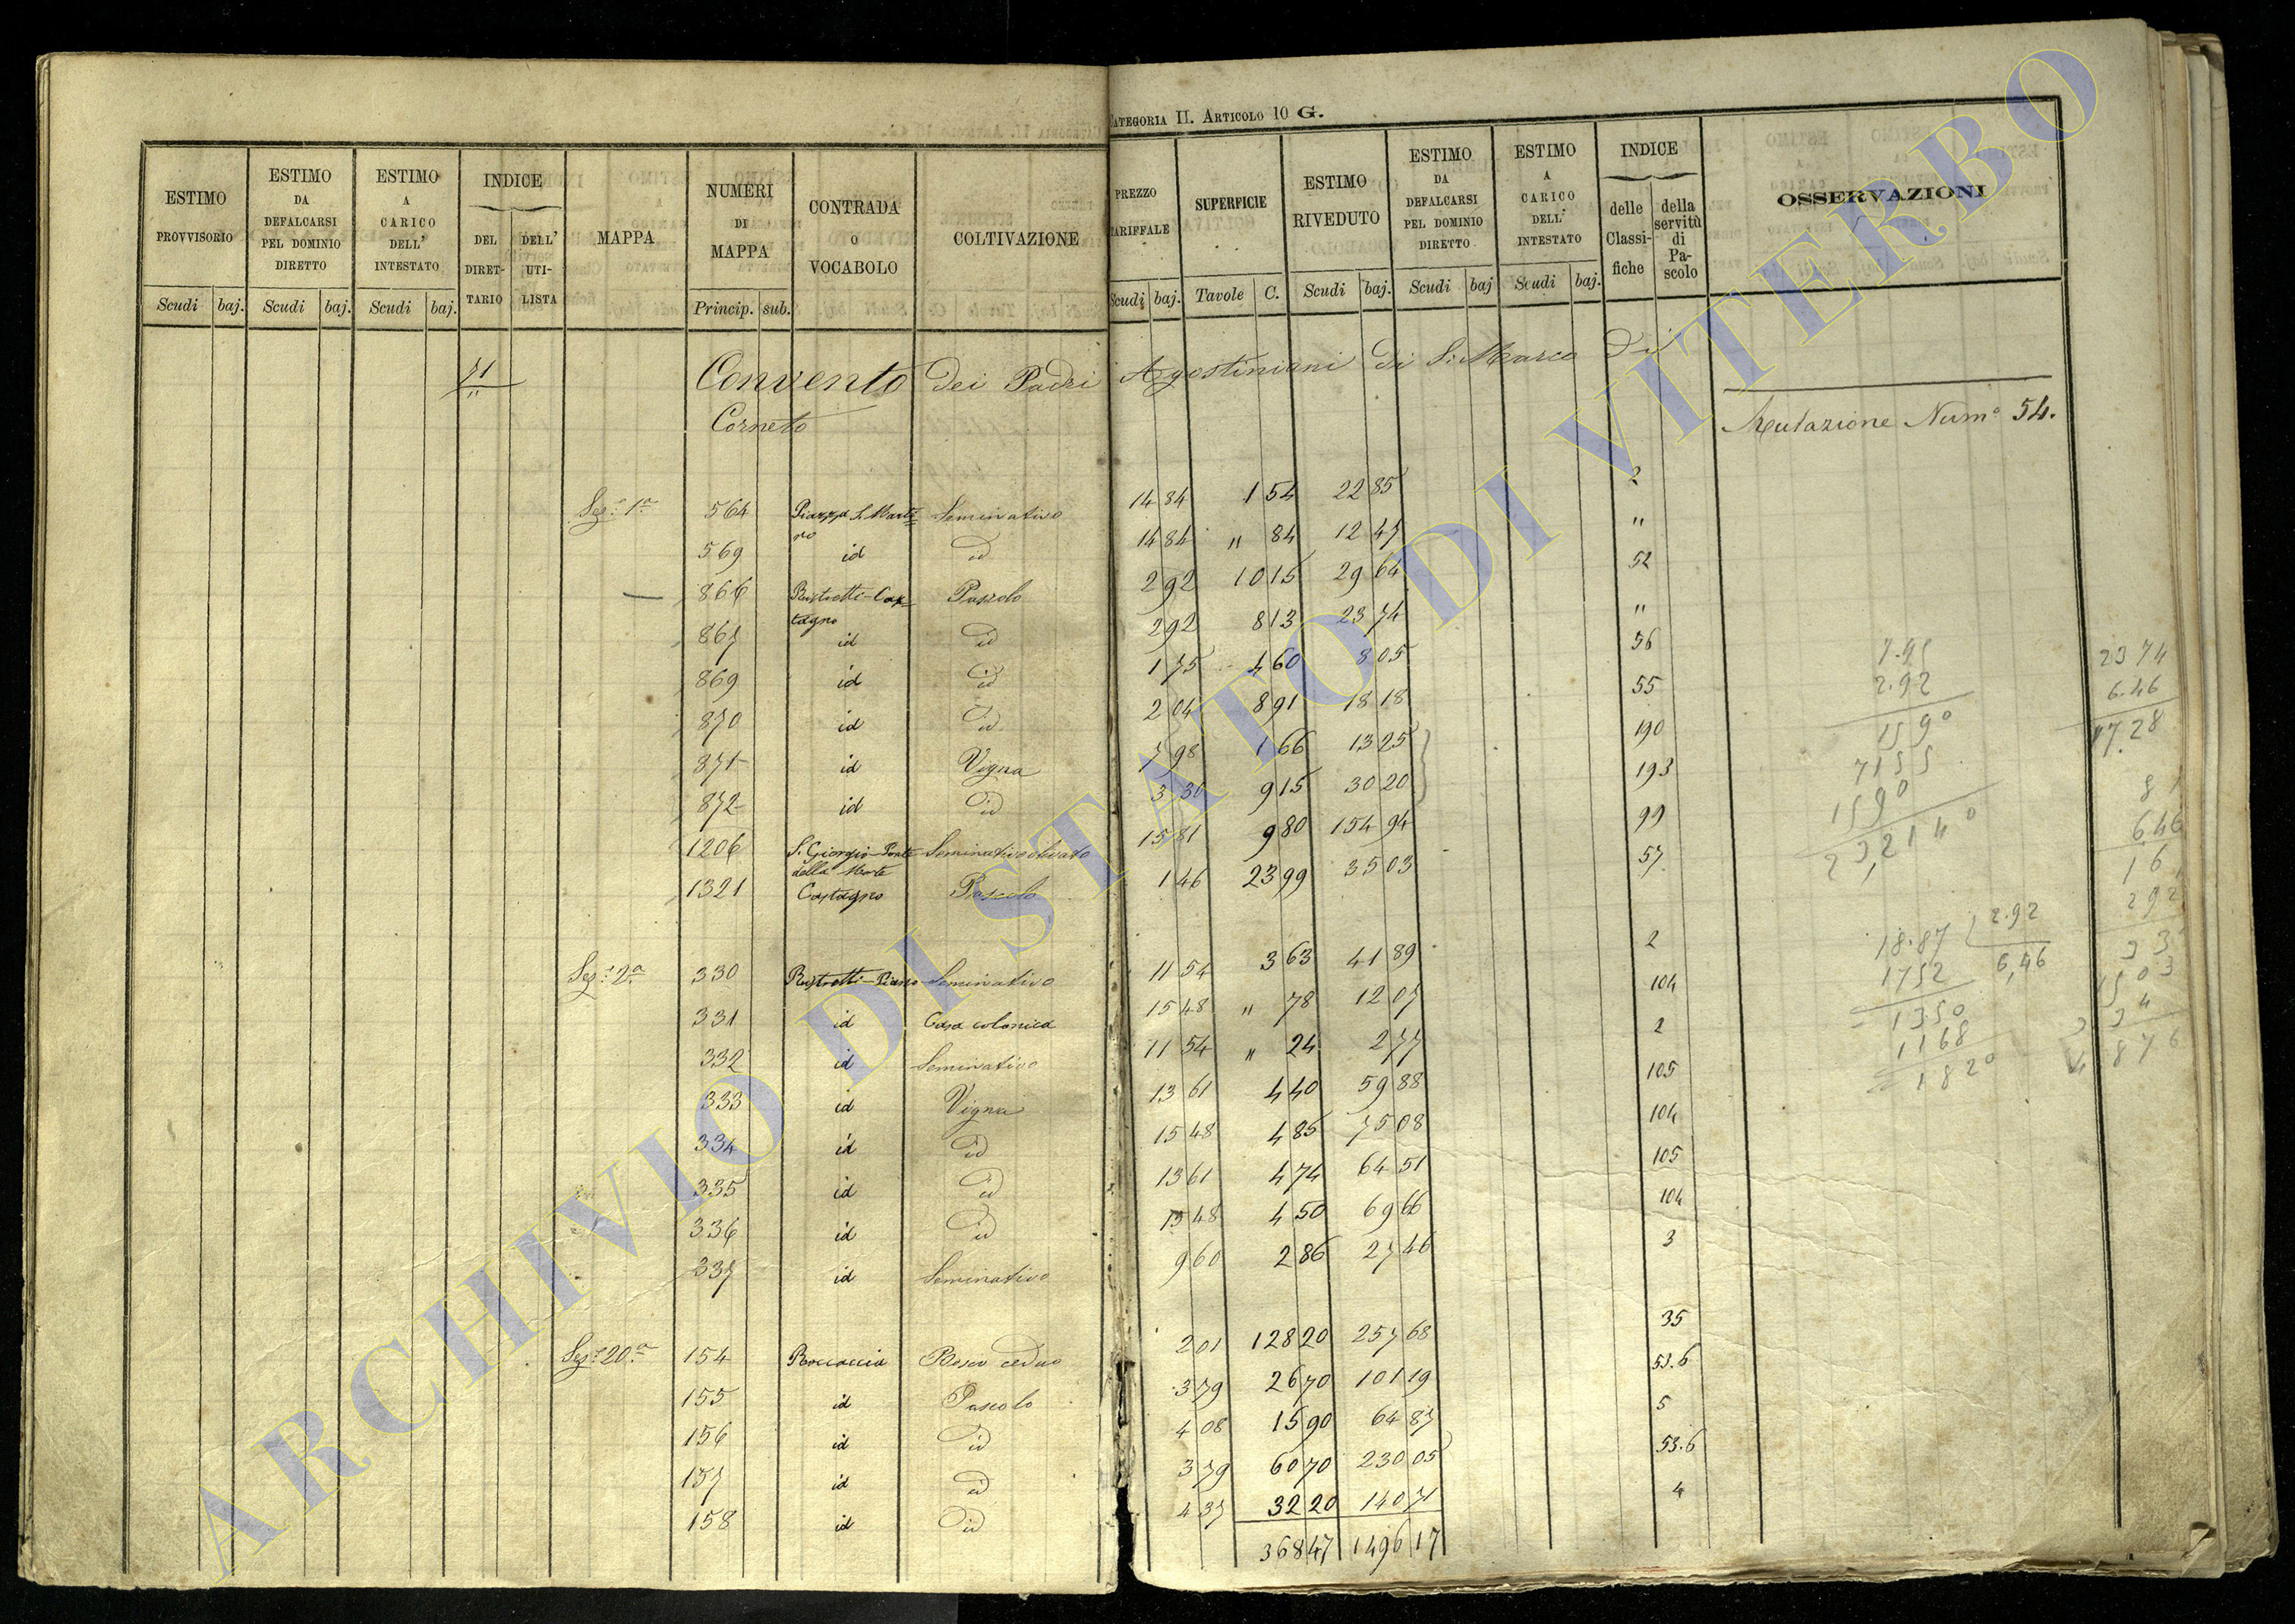 CATEGORIA II. ARTICOLO 10 G.
ESTIMO PROVVISORIO | ESTIMO DA DEFALCARSI PEL DOMINIO DIRETTO | ESTIMO A CARICO DELL' INTESTATO | INDICE | MAPPA | NUMERI DI MAPPA | CONTRADA O VOCABOLO | COLTIVAZIONE | PREZZO TARIFFALE | SUPERFICIE | ESTIMO RIVEDUTO | ESTIMO DA DEFALCARSI PEL DOMINIO DIRETTO | ESTIMO A CARICO DELL' INTESTATO | INDICE | OSSERVAZIONI
DEL DIRETTARIO | DELL' UTILISTA | delle Classifiche | della servitù di Pascolo
Scudi baj. | Scudi baj. | Scudi baj. | Princip. sub. | Scudi baj. | Tavole C. | Scudi baj. | Scudi baj | Scudi baj.
71 Convento dei Padri Agostiniani di S. Marco di
Corneto
Mutazione Num° 54.
Sez.e 1a 564 Piazza S. Martino Seminativo 14 84 1 54 22 85 2
569 id id 14 84 " 84 12 47 "
866 Ristretti-Castagno Pascolo 2 92 10 15 29 64 52
867 id id 2 92 8 13 23 74 "
869 id id 1 75 4 60 8 05 56
870 id id 2 04 8 91 18 18 55
871 id Vigna 7 98 1 66 13 25 190
872 id id 3 30 9 15 30 20 193
1206 S. Giorgio-Ponte della Marta Seminativo olivato 15 81 9 80 154 94 99
1321 Castagno Pascolo 1 46 23 99 35 03 57
Sez.e 2a 330 Ristretti-Piano Seminativo 11 54 3 63 41 89 2
331 id Casa colonica 15 48 " 78 12 07 104
332 id Seminativo 11 54 " 24 2 77 2
333 id Vigna 13 61 4 40 59 88 105
334 id id 15 48 4 85 75 08 104
335 id id 13 61 4 74 64 51 105
336 id id 15 48 4 50 69 66 104
337 id Seminativo 9 60 2 86 27 46 3
Sez.e 20a 154 Roccaccia Bosco ceduo 2 01 128 20 257 68 35
155 id Pascolo 3 79 26 70 101 19 53.6
156 id id 4 08 15 90 64 87 5
157 id id 3 79 60 70 230 05 53.6
158 id id 4 37 32 20 140 71 4
368 47 1496 17
2.92
15 9°
7155
159°
23,214°
18.87 2.92
1752 6,46
1350
1168
182°
23 74
6.46
17.28
81
6,46
292
ARCHIVIO DI STATO DI VITERBO